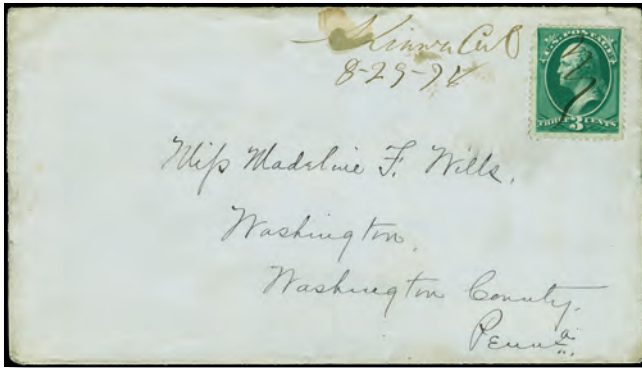 8-29-74
U.S. POSTAGE
THREE 3 CENTS
Miss Madeline F. Wills.
Washington,
Washington County,
Penn<sup>a</sup>.